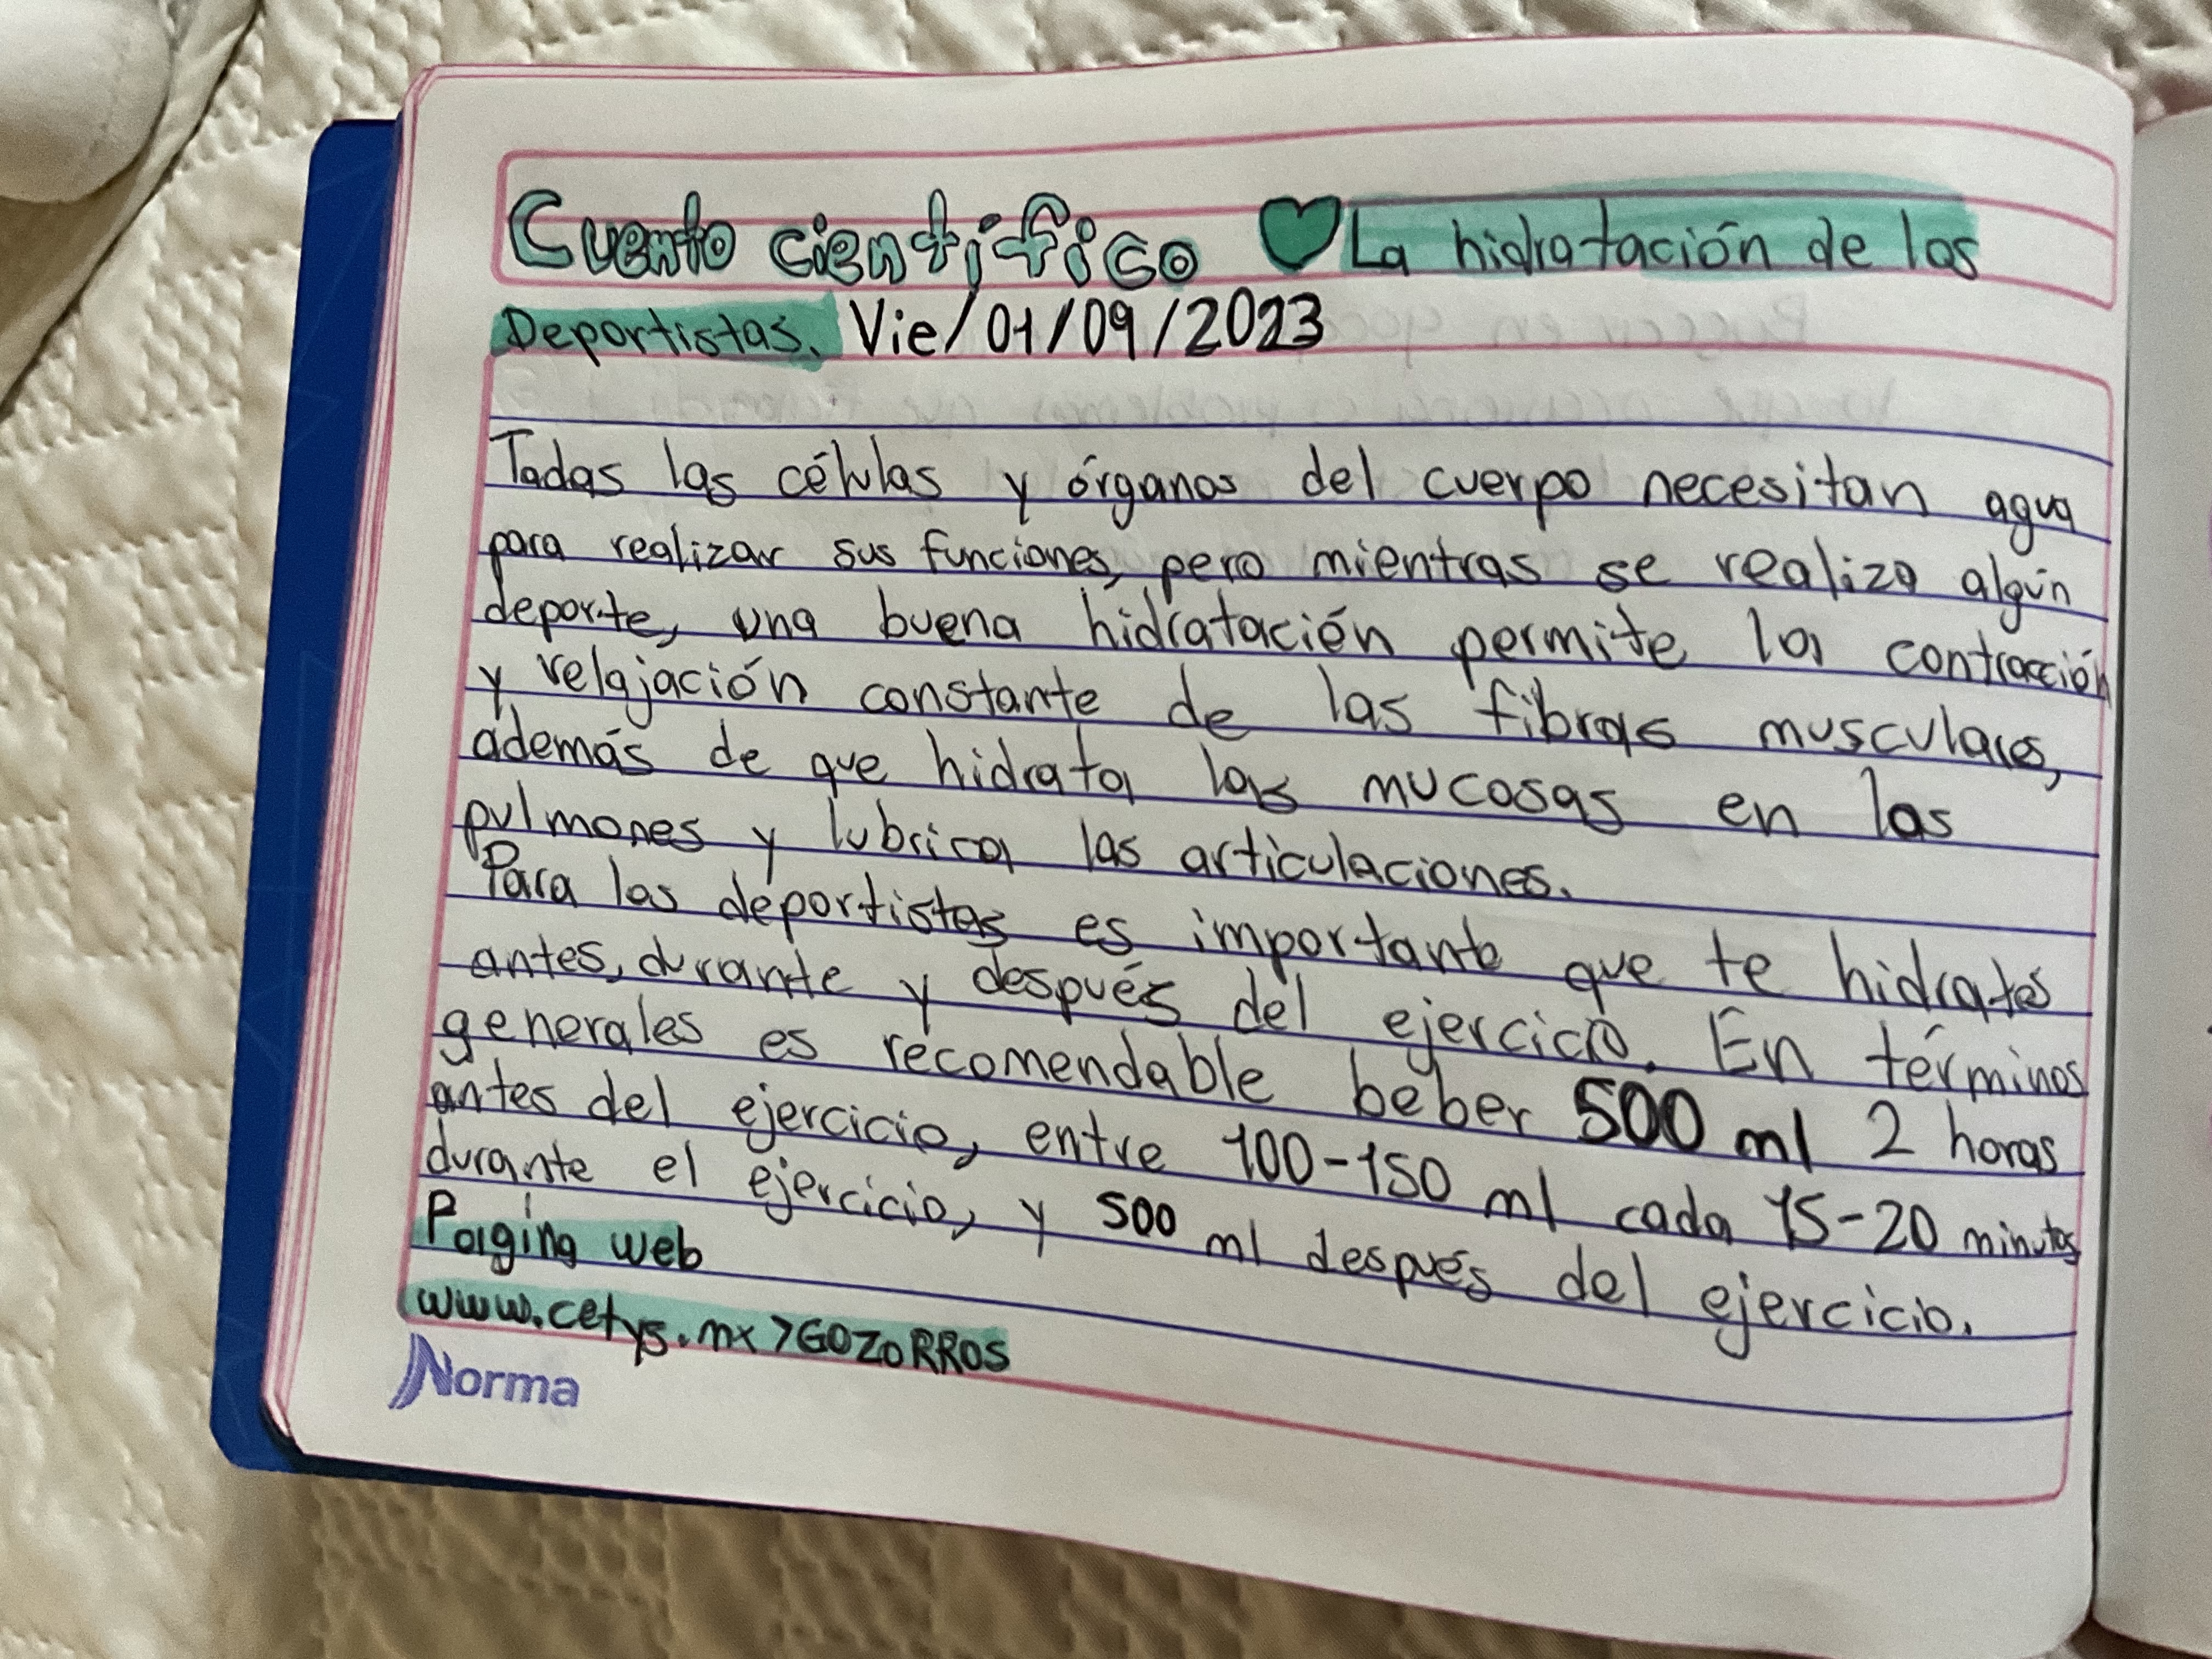 Cuento científico ♥ La hidratación de los
Deportistas. Vie/01/09/2023
Todas las células y órganos del cuerpo necesitan agua
para realizar sus funciones, pero mientras se realiza algún
deporte, una buena hidratación permite la contracción
y relajación constante de las fibras musculares,
además de que hidrata las mucosas en los
pulmones y lubrica las articulaciones.
Para los deportistas es importante que te hidrates
antes, durante y después del ejercicio. En términos
generales es recomendable beber 500 ml 2 horas
antes del ejercicio, entre 100-150 ml cada 15-20 minutos
durante el ejercicio, y 500 ml después del ejercicio.
Página web
www.cetys.mx >GOZORROS
Norma